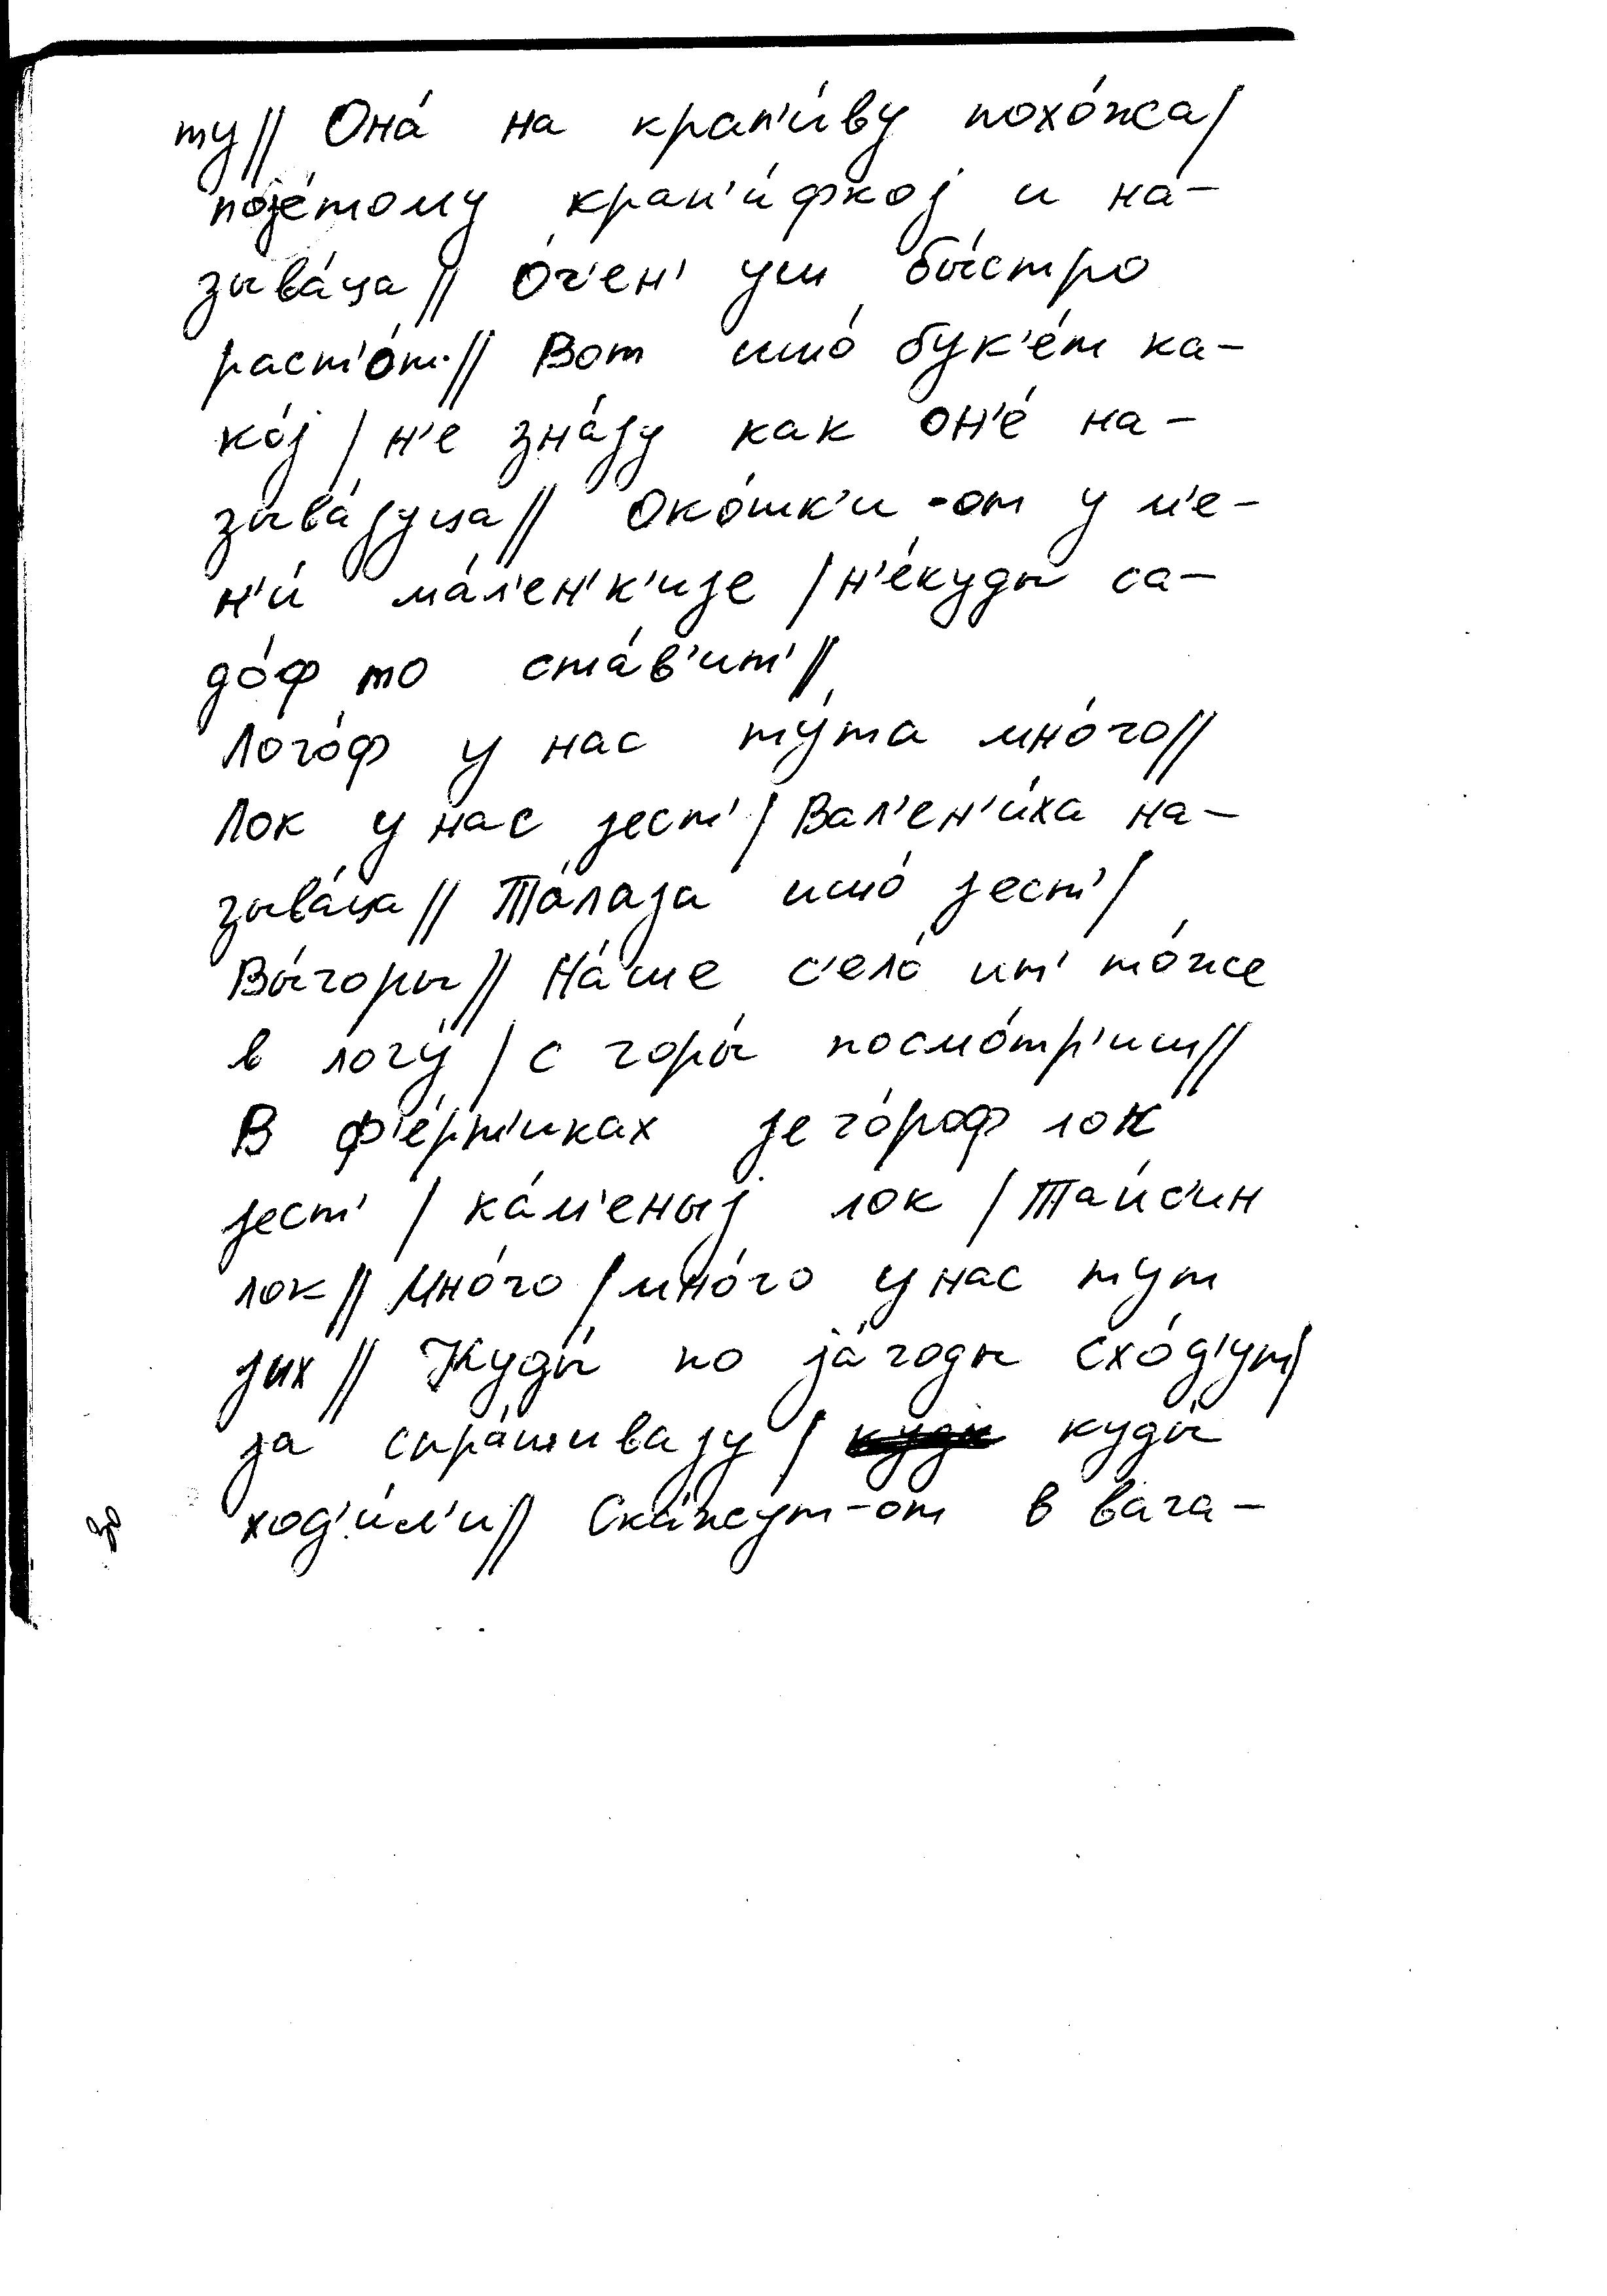 ту// Она́ на крап'и́ву похо́жа/
поjе́тому крап'и́фкоj и на-
зыва́ца// О́ч'ен' уш бы́стро
раст'о́т// Вот ишо́ бук'е́т ка-
ко́j / н'е зна́jу как он'е́ на-
зыва́jуца// Око́шк'и-от у м'е-
н'и́ ма́л'ен'к'иjе / н'е́куды са-
до́ф то ста́в'ит'//
Лого́ф у нас ту́та мно́го//
Лок у нас jест' / Вал'ен'и́ха на-
зыва́ца// Та́лаjа ишо́ jест' /
Вы́горы// На́ше с'ело́ ит' то́же
в логу́ / с горы́ посмо́тр'иш//
В ф'е́рт'иках jего́роф лок
jест' / ка́м'еныj лок / Таи́с'ин
лок// Мно́го / мно́го у нас тут
jих// Куды́ по jа́годы схо́д'ут/
jа спра́шиваjу / куды́
ход'и́л'и// Ска́жут-от в вага-